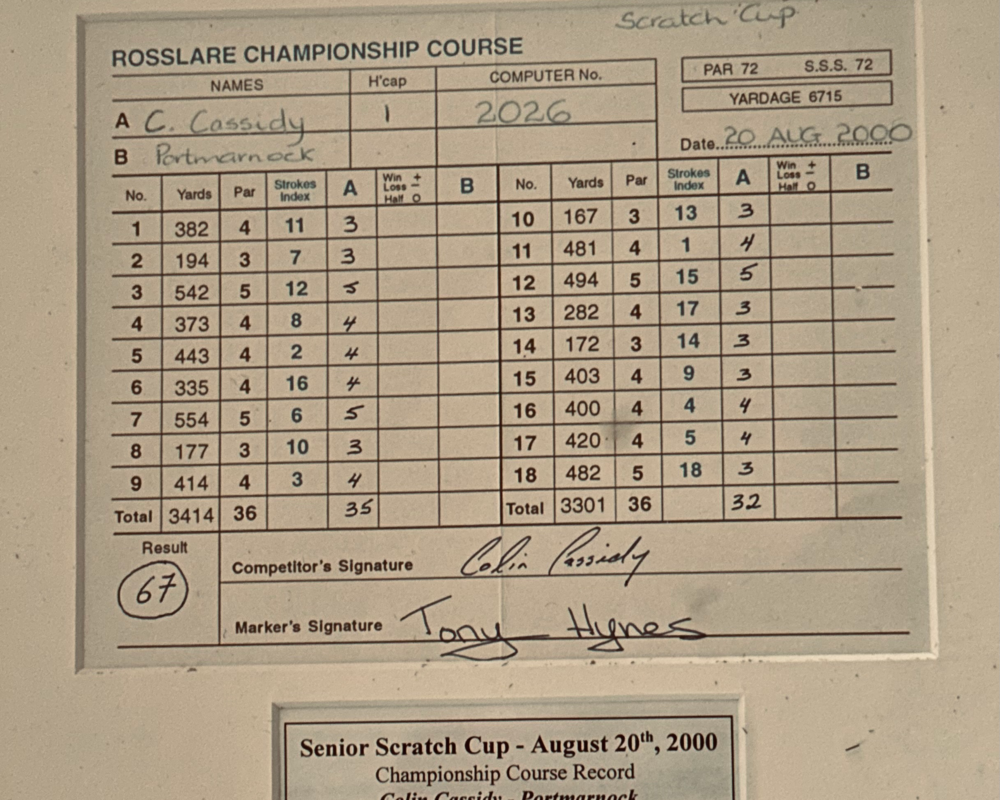 Scratch Cup
ROSSLARE CHAMPIONSHIP COURSE
PAR 72 S.S.S. 72
YARDAGE 6715
NAMES H'cap COMPUTER No.
A C. Cassidy 1 2026
B Portmarnock
Date 20 AUG 2000
No. Yards Par Strokes Index A Win + Loss – Half O B No. Yards Par Strokes Index A Win + Loss – Half O B
1 382 4 11 3 10 167 3 13 3
2 194 3 7 3 11 481 4 1 4
3 542 5 12 5 12 494 5 15 5
4 373 4 8 4 13 282 4 17 3
5 443 4 2 4 14 172 3 14 3
6 335 4 16 4 15 403 4 9 3
7 554 5 6 5 16 400 4 4 4
8 177 3 10 3 17 420 4 5 4
9 414 4 3 4 18 482 5 18 3
Total 3414 36 35 Total 3301 36 32
Result
67
Competitor's Signature Colin Cassidy
Marker's Signature Tony Hynes
Senior Scratch Cup - August 20th, 2000
Championship Course Record
Colin Cassidy - Portmarnock